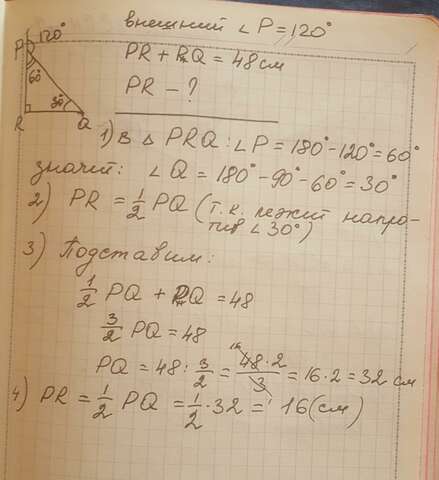 внешний ∠P = 120°
P 120°
60°
30°
R Q
PR + PQ = 48 см
PR - ?
1) В △ PRQ: ∠P = 180° - 120° = 60°
значит: ∠Q = 180° - 90° - 60° = 30°
2) PR = 1/2 PQ (т.к. лежит напро-
тив ∠30°)
3) Подставим:
1/2 PQ + PQ = 48
3/2 PQ = 48
PQ = 48 : 3/2 = 48 · 2 / 3 = 16 · 2 = 32 см
16
4) PR = 1/2 PQ = 1/2 · 32 = 16 (см)